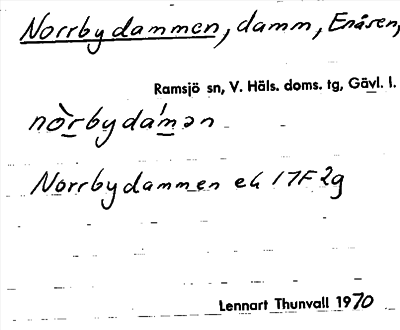 Norrbydammen, damm, Enåsen,
Ramsjö sn, V. Häls. doms. tg, Gävl. l.
nòrbydám̲ən
Norrbydammen ek 17F 2g
Lennart Thunvall 1970